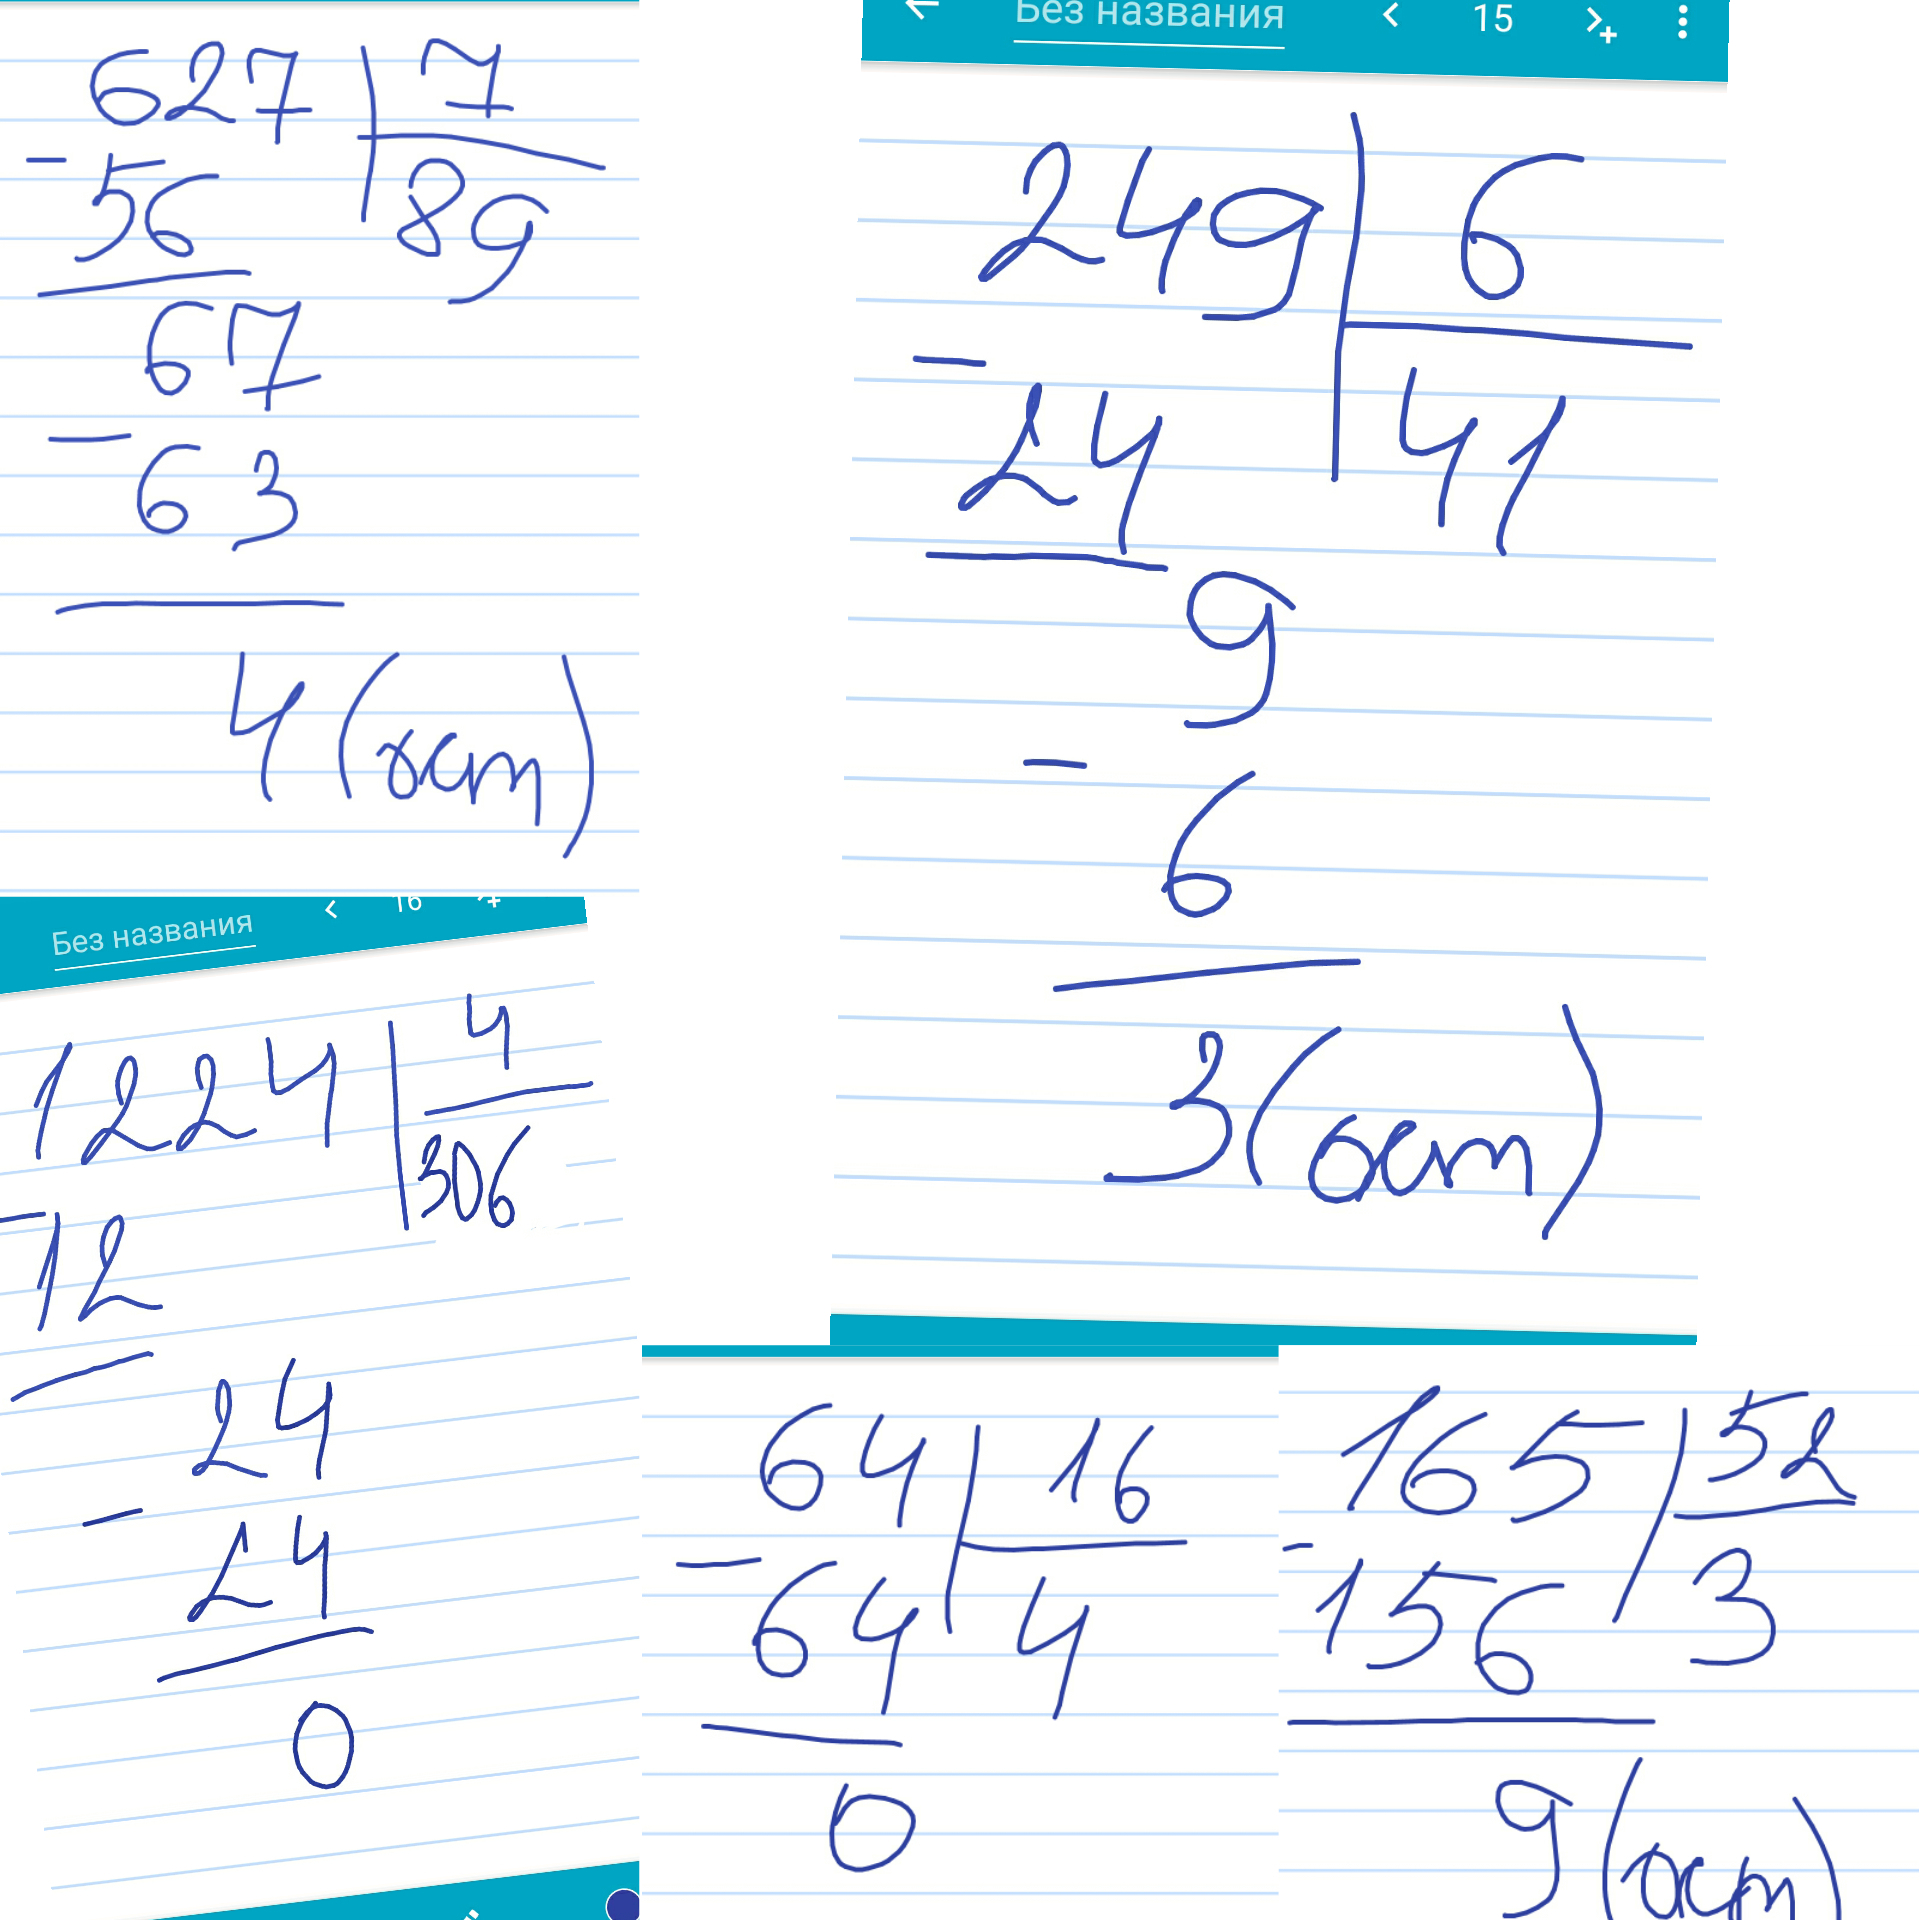 627 | 7
- 56 | 89
67
- 63
4 (ост)
Без названия < 15 >+
249 | 6
- 24 | 41
9
- 6
3 (ост)
Без названия < 16
1224 | 4
- 12 | 306
24
- 24
0
64 | 16
- 64 | 4
0
165 | 52
- 156 | 3
9 (ост)